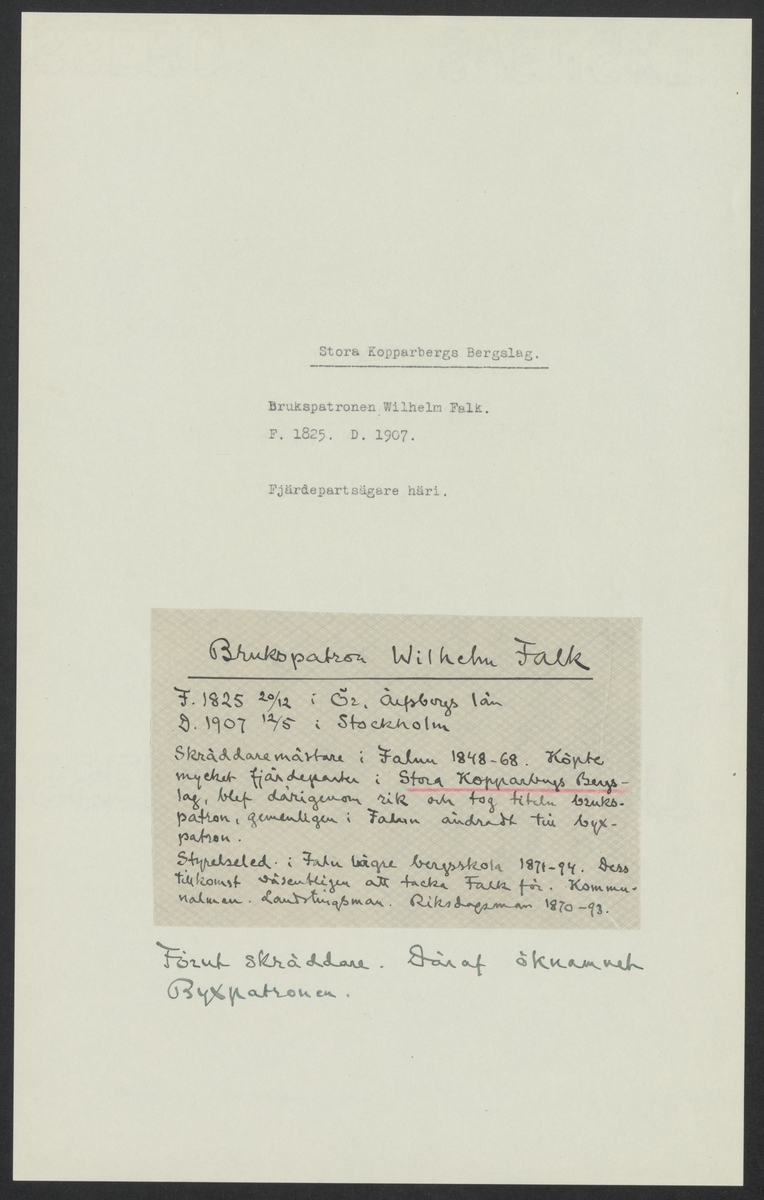 Stora Kopparbergs Bergslag.
Brukspatronen Wilhelm Falk.
F. 1825. D. 1907.
Fjärdepartsägare häri.
Brukspatron Wilhelm Falk
F. 1825 20/12 i Ör, Älfsborgs län
D. 1907 12/5 i Stockholm
Skräddaremästare i Falun 1848-68. Köpte
mycket fjärdeparter i Stora Kopparbergs Bergs-
lag, blef därigenom rik och tog titeln bruks-
patron, gemenligen i Falun ändradt till byx-
patron.
Styrelseled. i Falu lägre bergsskola 1871-94. Dess
tillkomst väsentligen att tacka Falk för. Kommu-
nalman. Landstingsman. Riksdagsman 1870-93.
Förut skräddare. Däraf öknamnet
Byxpatronen.